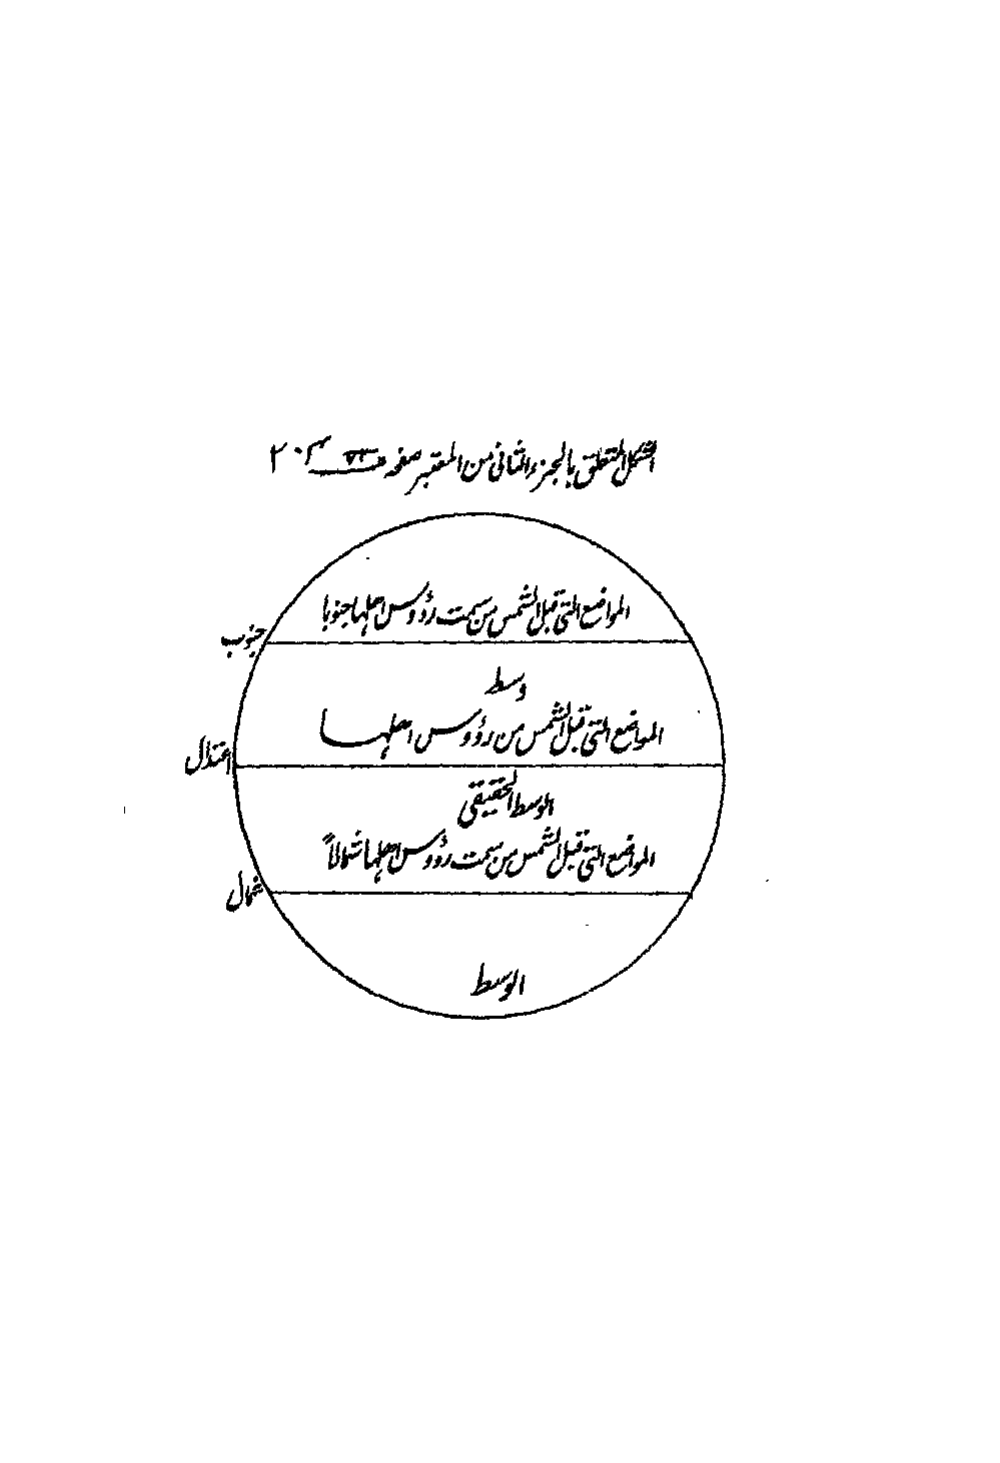 الشكل المتعلق بالجزء الثانى من المعتبر صفحه ٧٣ ٢٠٣
المواضع التى قبل الشمس من سمت رؤوس اهلها جنوبا
جنوب
وسط
المواضع التى قبل الشمس من رؤوس اهلها
اعتدال
الوسط الحقيقى
المواضع التى قبل الشمس من سمت رؤوس اهلها شمالاً
شمال
الوسط